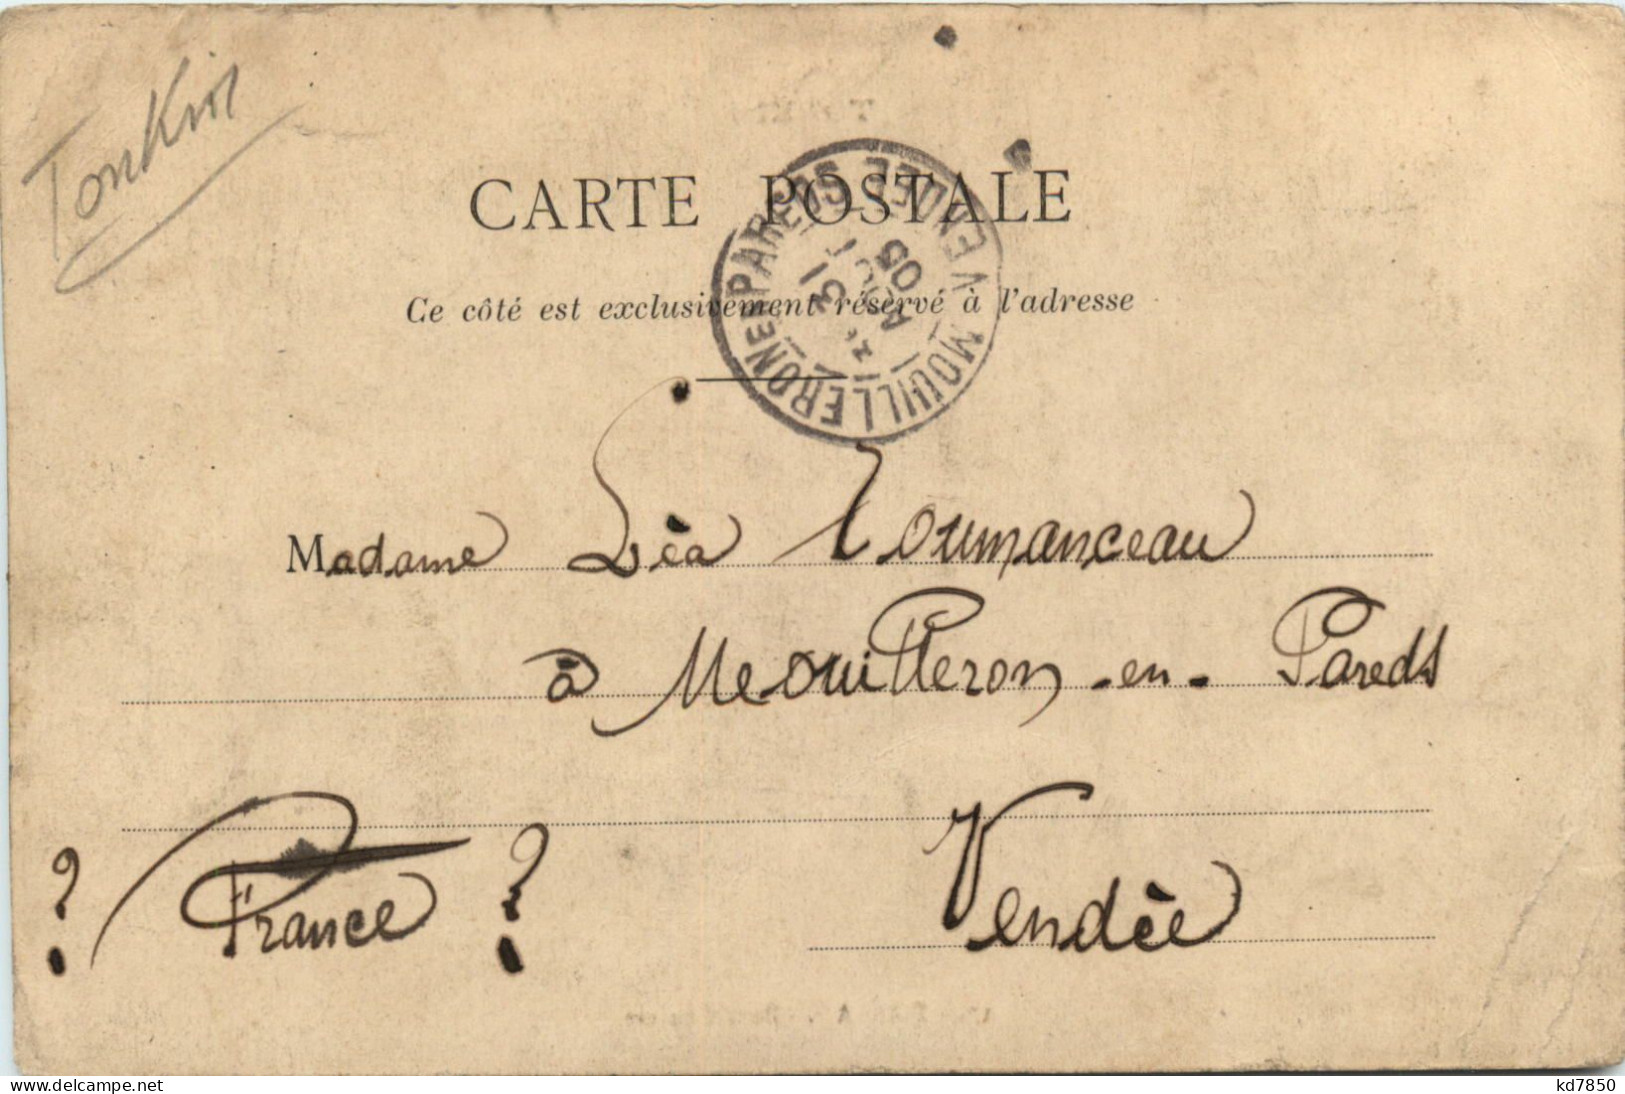 Tonkin
CARTE POSTALE
Ce côté est exclusivement réservé à l'adresse
MOUILLERON EN PAREDS VENDEE
31
AOUT
05
Madame Léa Toumanceau
à Mouilleron-en-Pareds
? France ? Vendée
www.delcampe.net
kd7850